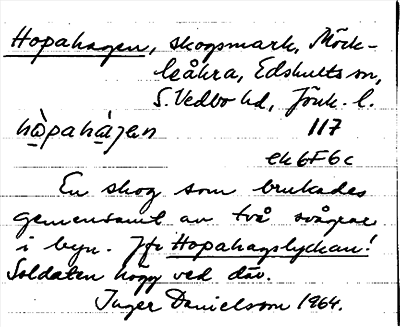 Hopahagen, skogsmark, Möck-
leåkra, Edshults sn,
S. Vedbo hd, Jönk. l.
hòpahájen 117
ek 6F6c
En skog som brukades
gemensamt av två svågrar
i byn. Jfr Hopahagslyckan!
Soldaten högg ved där.
Inger Danielsson 1964.